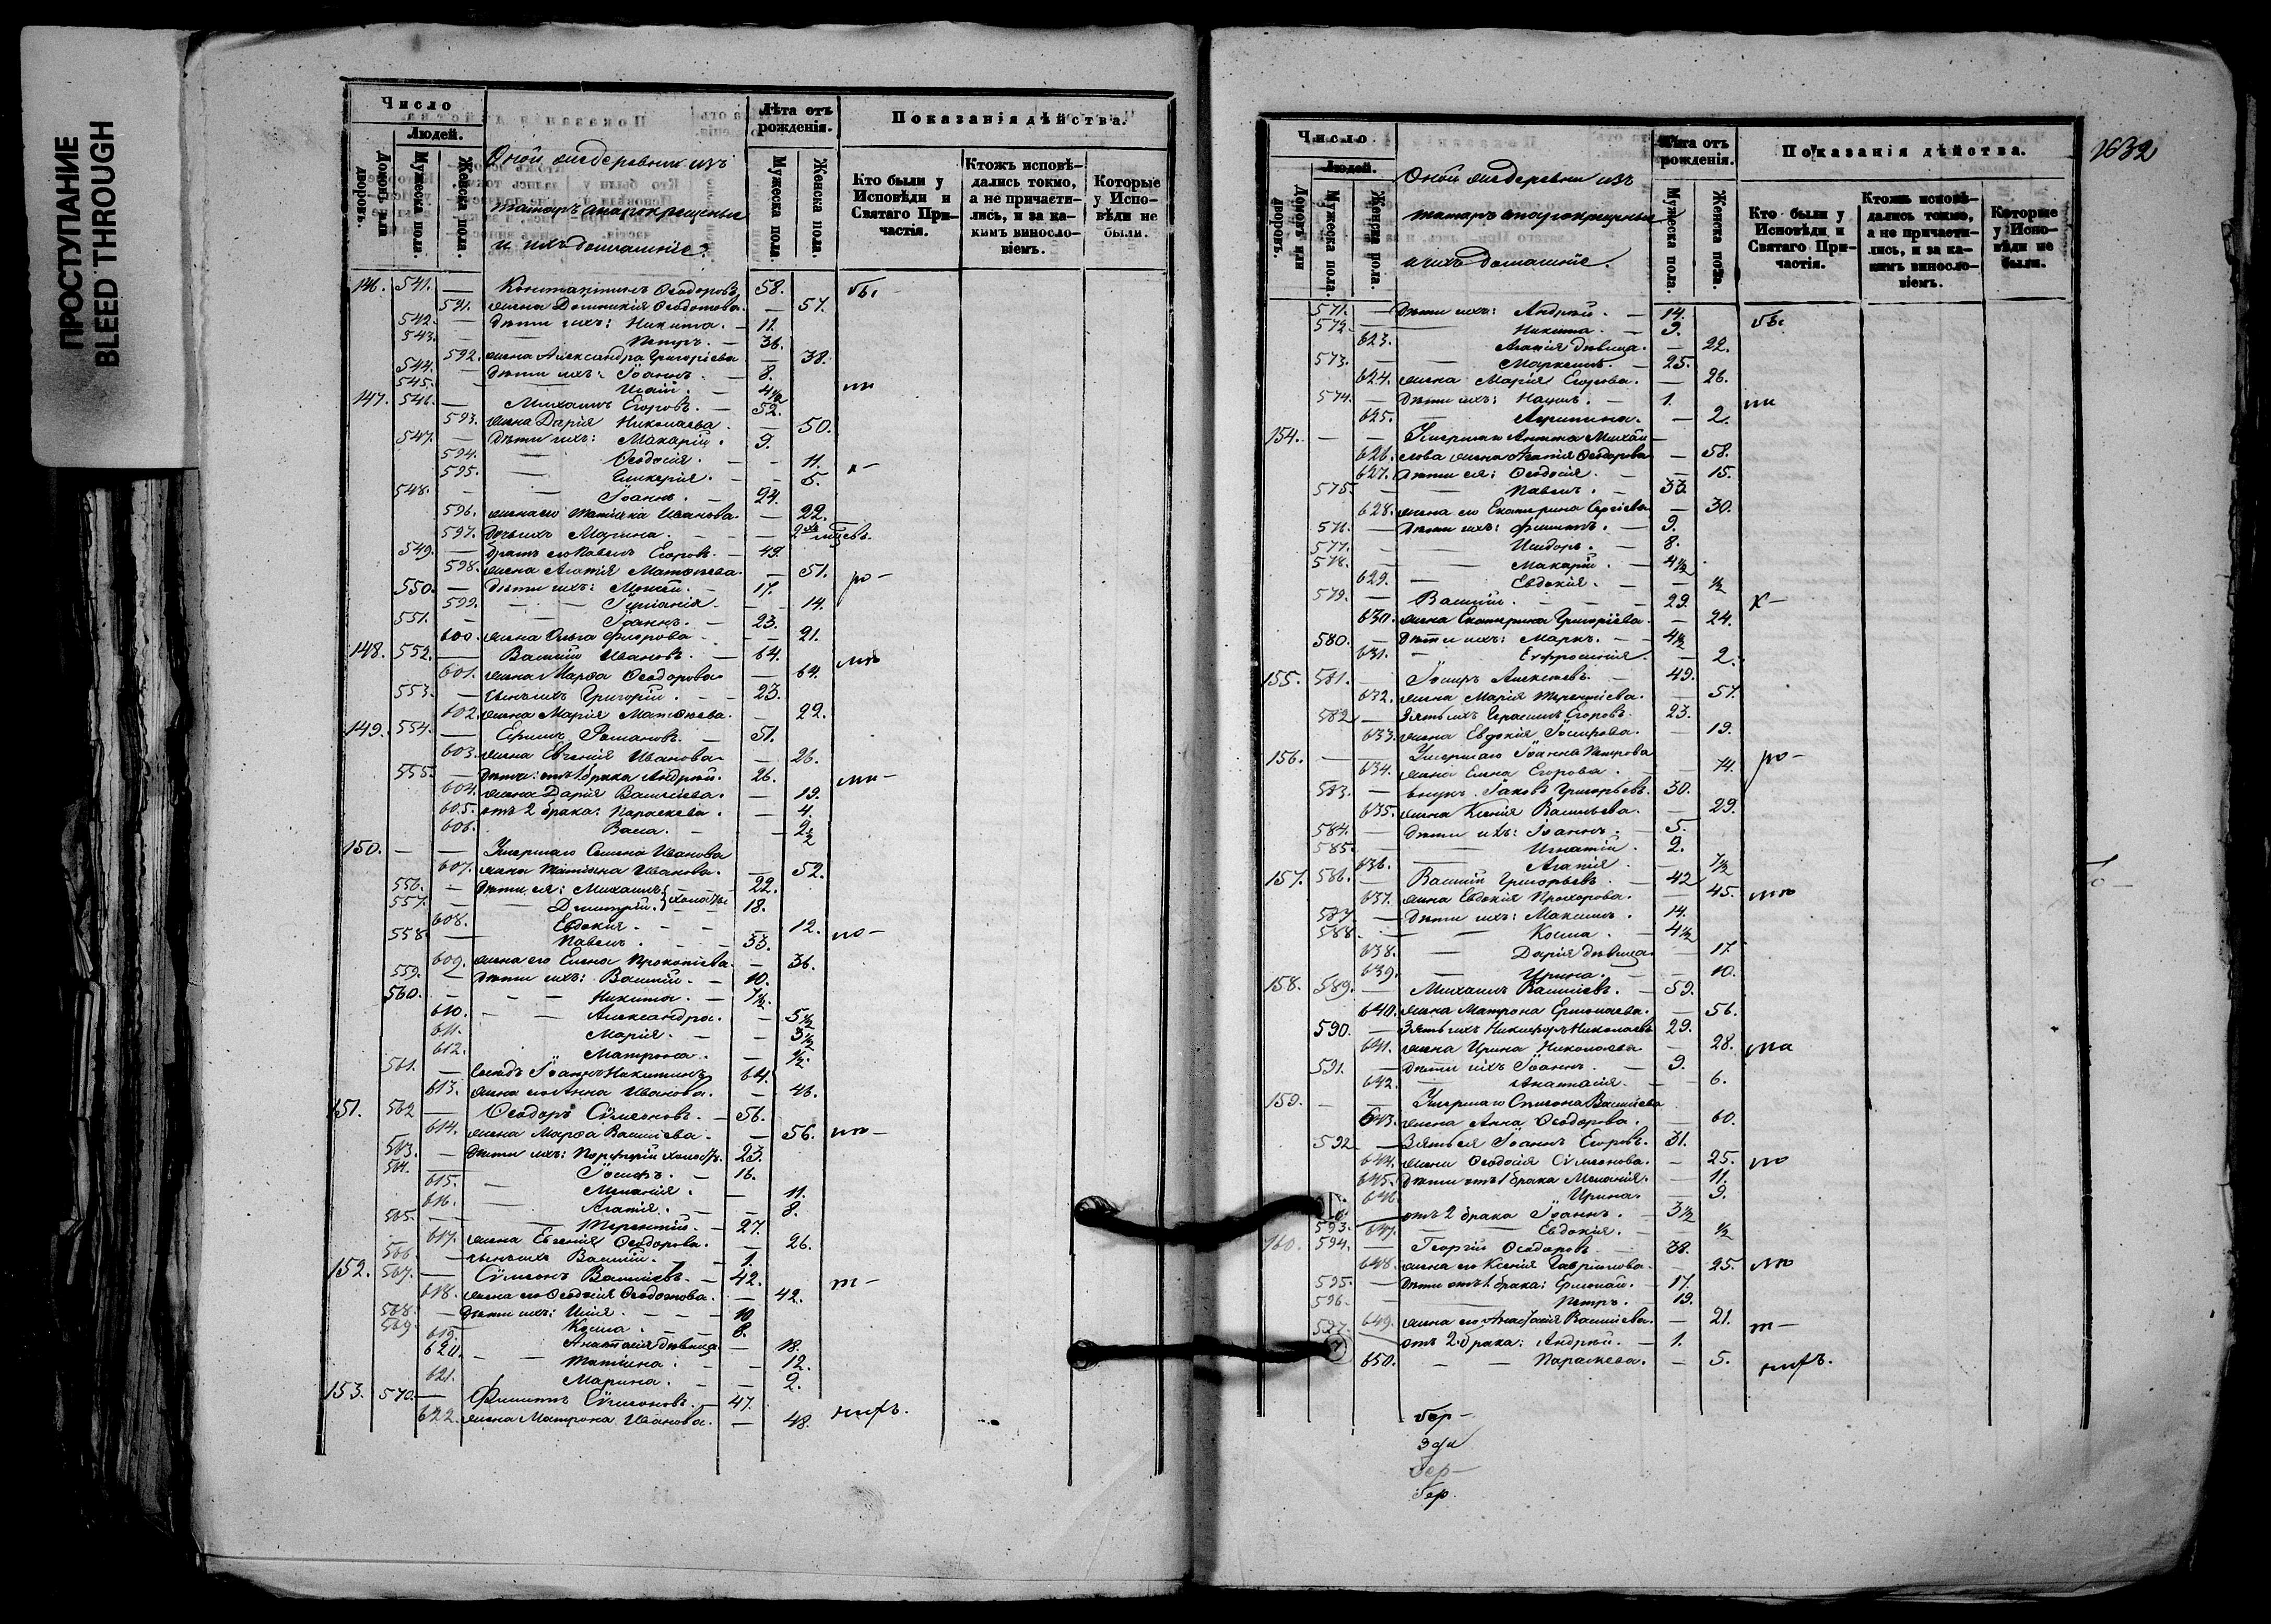 ПРОСТУПАНИЕ
BLEED THROUGH
Число
Людей.
Домовъ или дворовъ.
Мужеска пола.
Женска пола.
Оной же деревни изъ
татаръ старокрещеные
и ихъ домашніе:
Лѣта отъ рожденія.
Мужеска пола.
Женска пола.
Показанія дѣйства.
Кто были у Исповѣди и Святаго Причастія.
Ктожъ исповѣдались токмо, а не причастились, и за какимъ винословіемъ.
Которые у Исповѣди не были.
146. 541. — Константинъ Ѳеодоровъ. 58.
591. жена Домникія Ѳеодотова. — 57.
542. — дѣти ихъ: Никита. — 11.
543. — Петръ. — 36.
592. жена Александра Григоріева — 38.
544. — дѣти ихъ: Іоаннъ. — 8.
545. — Исаій. — 4½
147. 546. — Михаилъ Егоровъ. — 52.
593. жена Дарія Николаева. — 50.
547. — дѣти ихъ: Макарій. 9.
594. — Ѳеодосія. — 11.
595. — Гликерія. — 5.
548. — Іоаннъ. — 24.
596. жена его Татіана Иванова. — 22.
597. дочь ихъ Марина. — 2 мѣсяцевъ.
549. — братъ его Павелъ Егоровъ. — 49.
598. жена Агафія Матѳеева. — 51.
550. — дѣти ихъ: Моисей. — 17.
599. — Іуліанія. — 14.
551. — Іоаннъ. — 23.
600. жена Ольга Флорова. — 21.
148. 552. — Василій Ивановъ. — 64.
601. жена Марѳа Ѳеодорова. — 64.
553. — сынъ ихъ Григорій. — 23.
602. жена Марія Матѳеева. — 22.
149. 554. — Ефимъ Романовъ. — 51.
603. жена Евгенія Иванова. — 26.
555. — дѣти: отъ 1 брака Андрей. 26.
604. жена Дарія Василіева. — 19.
605. отъ 2 брака: Параскева. — 4.
606. Васса. — 2½
150. — — Умершаго Семена Иванова
607. жена Татіана Иванова. — 52.
556. — дѣти ея: Михаилъ } холосты — 22.
557. — Димитрій. — 18.
608. Евдокія. — 12.
558. — Павелъ. — 33.
609. жена его Елена Прокопіева. — 36.
559. — дѣти ихъ: Василій. — 10.
560. — Никита. — 7½.
610. — Александра. — 5½
611. Марія. — 3½
612. Матрона. — ½.
561. — Іоаннъ Никитинъ 64.
613. жена его Анна Иванова. — 46.
151. 562 — Ѳеодоръ Сѵмеоновъ. — 56.
614. жена Марѳа Василіева. — 56.
563. — дѣти ихъ: Порфирій холостъ. 23.
564. Іосифъ. — 16.
615. — Меланія. — 11.
616. — Агафія. — 8.
565. — Терентій. — 27.
617. жена Евгенія Ѳеодорова. — 26.
566 — сынъ ихъ Василій. — 1.
152. 567. — Сѵмеонъ Василіевъ. — 42.
618. жена его Ѳеодосія Ѳеодотова. — 42.
568. — дѣти ихъ: Илія. — 10
569 — Косма. — 8.
619. Анастасія дѣвица — 18.
620. — Татіана. — 12.
621. Марина. — 2.
153. 570. — Филиппъ Сѵмеоновъ. — 47.
622. жена Матрона Иванова. — 48.
1632
Число
Людей.
Домовъ или дворовъ.
Мужеска пола.
Женска пола.
Оной же деревни изъ
татаръ старокрещеные
и ихъ домашніе.
Лѣта отъ рожденія.
Мужеска пола.
Женска пола.
Показанія дѣйства.
Кто были у Исповѣди и Святаго Причастія.
Ктожъ исповѣдались токмо, а не причастились, и за какимъ винословіемъ.
Которые у Исповѣди не были.
571. — дѣти ихъ: Андрей. — 14.
572. — Никита. — 9.
623. Агафія дѣвица. — 22.
573. — Маркеллъ. — 25.
624. жена Марія Егорова. — 26.
574. — дѣти ихъ: Наумъ. — 1.
625. — Агриппина. — 2.
154. — — Умершаго Антона Михаи—
626. лова жена Агафія Ѳеодорова — 58.
627. дѣти ея: Ѳеодосія. — 15.
575. — Павелъ. — 33.
628. жена его Екатерина Сергіева — 30.
576. — дѣти ихъ: Филиппъ. — 9.
577. — Исидоръ. — 8.
578. — Макарій. — 4½
629. — Евдокія. — ½
579. — Василій. — 29.
630. жена Екатерина Григоріева. — 24.
580. — дѣти ихъ: Маркъ. — 4½
631. — Евфросинія. — 2.
155. 581. — Іосифъ Алексѣевъ. — 49.
632. жена Марія Терентіева. — 57.
582 — Зять ихъ Герасимъ Егоровъ. 23.
633. жена Евдокія Іосифова. — 19.
156. — — Умершаго Іоанна Петрова
634. жена Елена Егорова. — 74.
583. — внукъ Іаковъ Григорьевъ. 30.
635. жена Ксенія Васильева. — 29.
584. — дѣти ихъ: Іоаннъ. — 5.
585. — Игнатій. 2.
636. — Агафія. — 7½
157. 586. — Василій Григорьевъ. — 42
637. жена Евдокія Прохорова. — 45.
587. — дѣти ихъ: Максимъ. 14.
588. — Косма. — 4½
638. — Дарія дѣвица — 17
639. — Ирина. — 10.
158. 589. — Михаилъ Василіевъ. — 59.
640. жена Матрона Ермолаева. — 56.
590. — Зять ихъ Никифоръ Николаевъ 29.
641. жена Ирина Николаева — 28.
591. — дѣти ихъ Іоаннъ. — 9.
642. — Анастасія. — 6.
159. — — Умершаго Симеона Василіева
643. жена Анна Ѳеодорова. — 60.
592 — Зять ея Іоаннъ Егоровъ. 31.
644. жена Ѳеодосія Сѵмеонова. — 25.
645. дѣти отъ 1 брака Меланія. — 11.
646 Ирина. — 9.
593. — отъ 2 брака Іоаннъ. — 3½
647. — Евдокія. — ½
160. 594. — Георгій Ѳеодоровъ. — 38.
648. жена его Ксенія Гавріилова. — 25.
595. — дѣти отъ 1 брака: Ермолай. — 17.
596. — Петръ. — 19.
649. жена его Анастасія Василіева. — 21.
597. отъ 2 брака: Андрей. — 1.
650. — — Параскева. — 5.